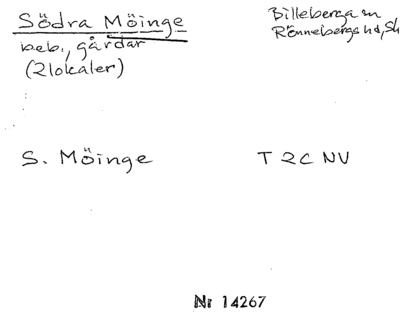 Södra Möinge
Billeberga sn
beb., gårdar
Rönnebergs hd, Sk
(2 lokaler)
S. Möinge
T 2C NV
Nr 14267